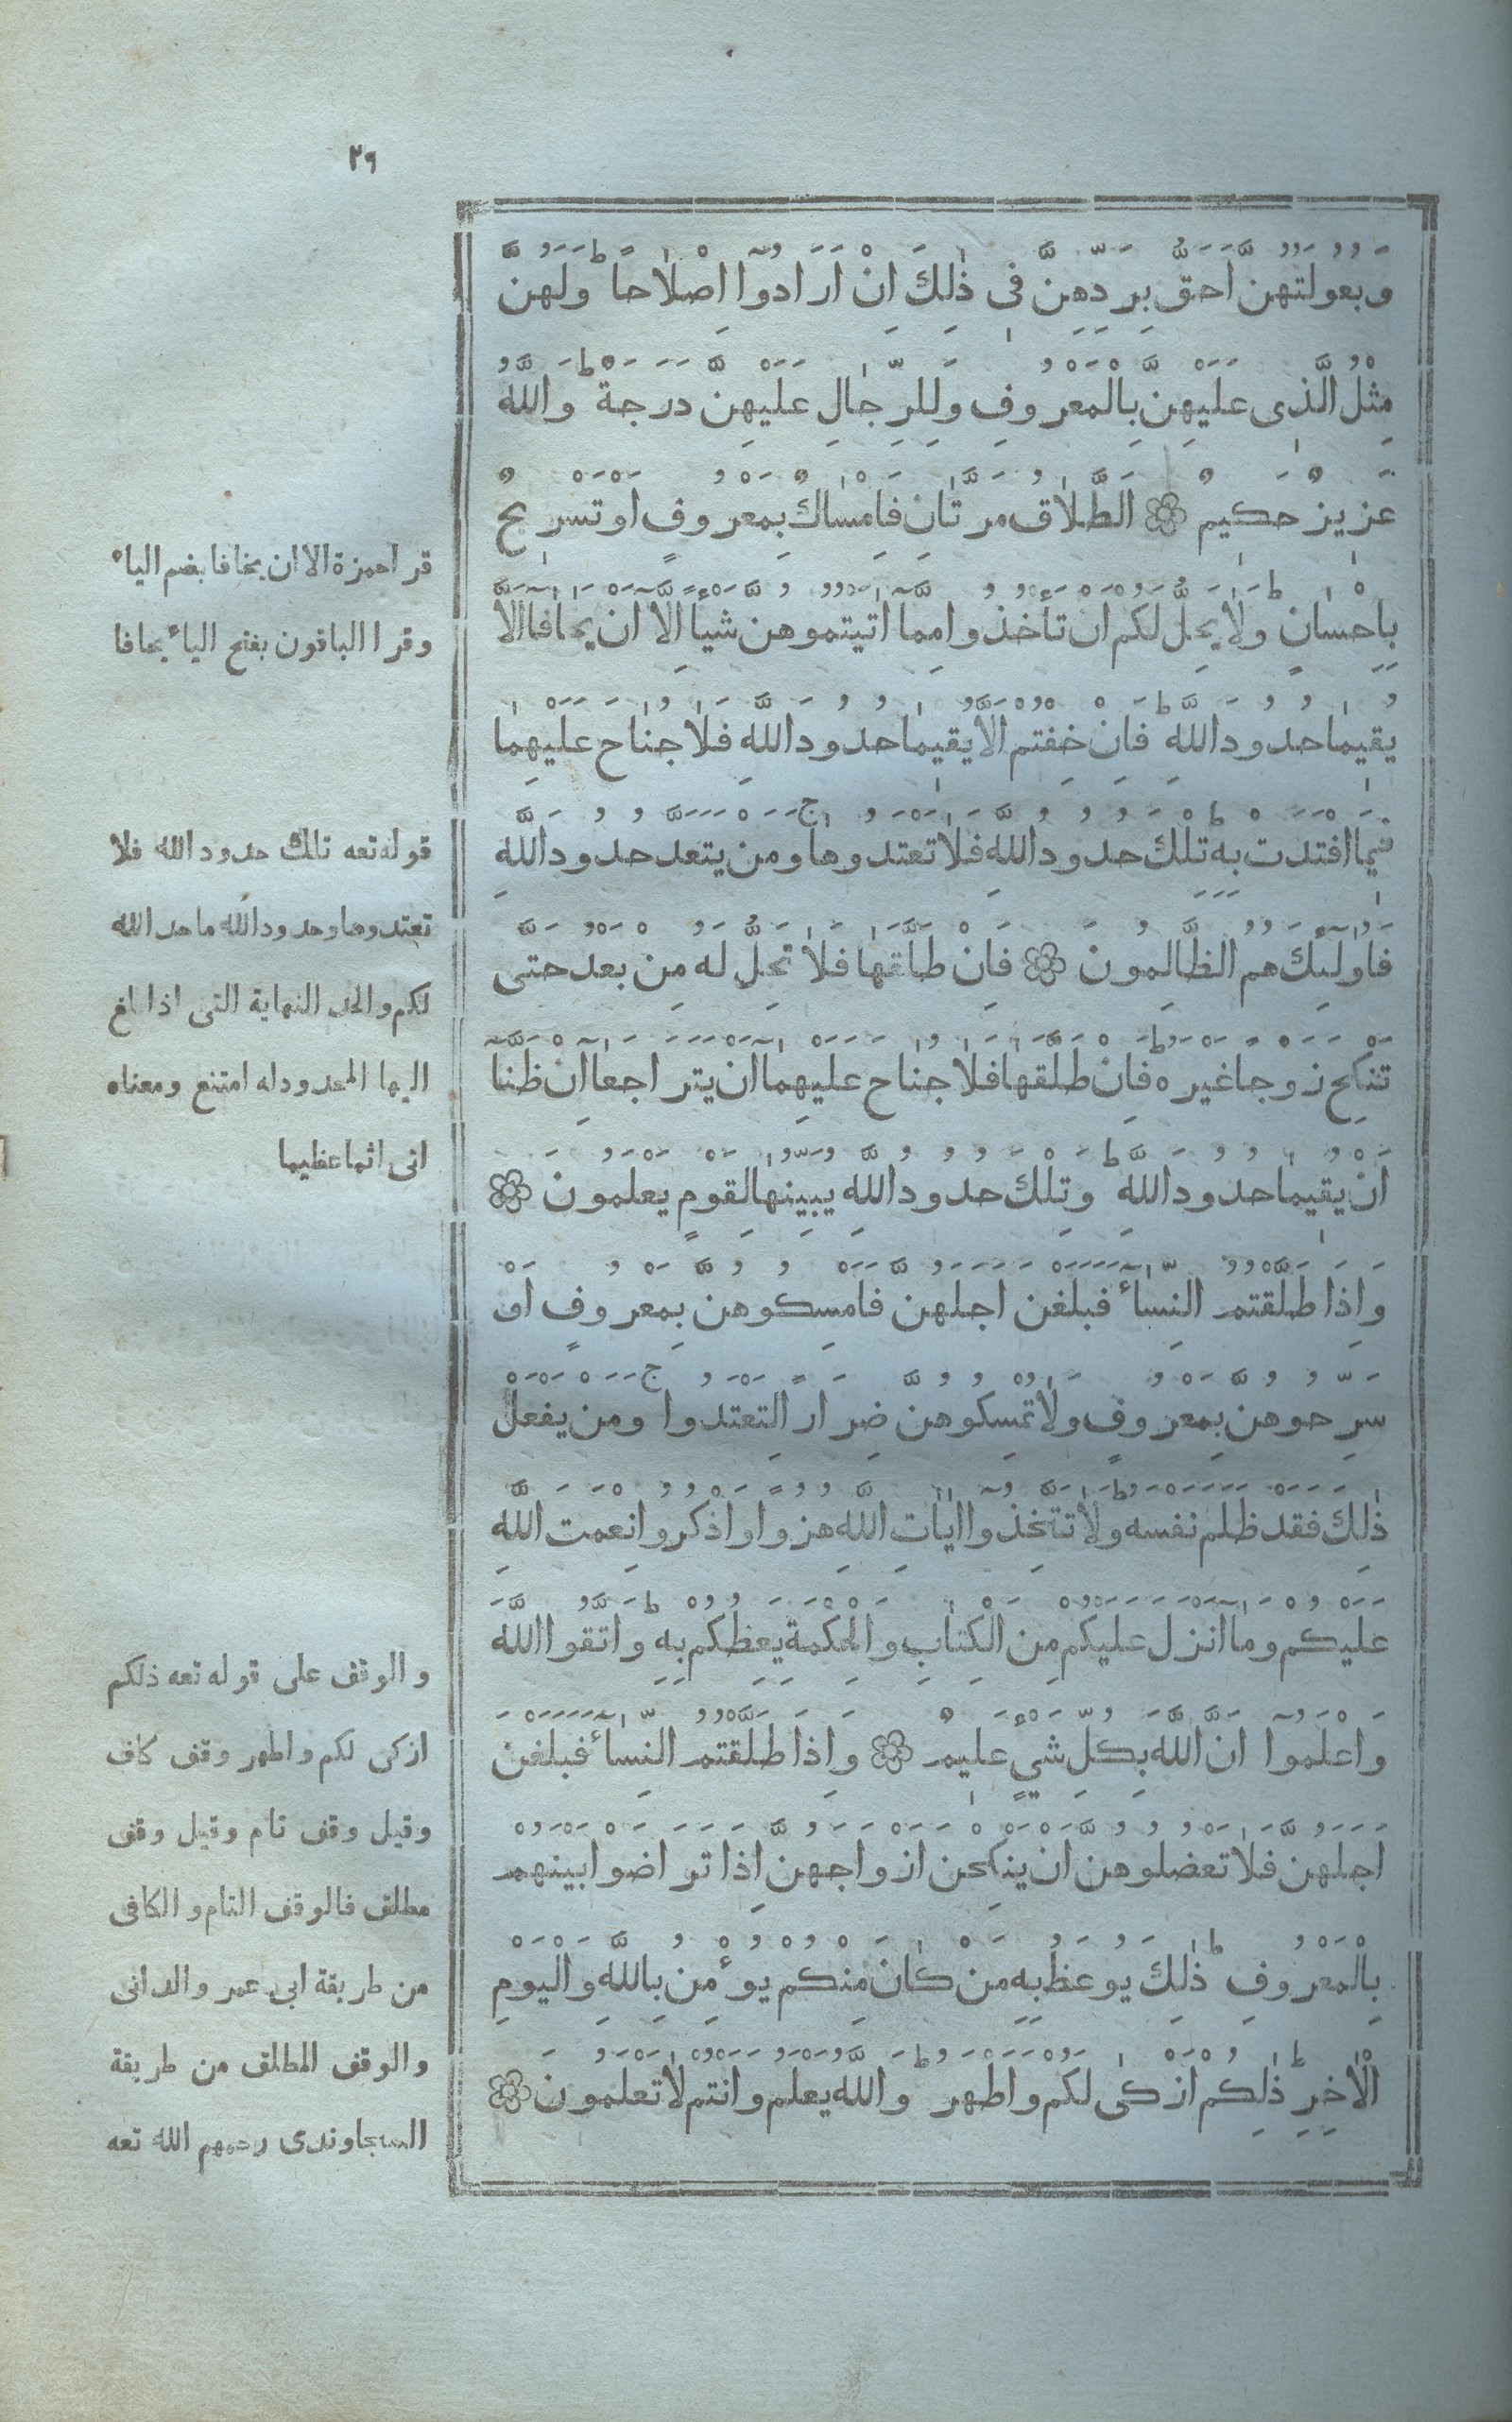 ٢٩
وَبُعُولَتُهُنَّ اَحَقُّ بِرَدِّهِنَّ فٖى ذٰلِكَ اِنْ اَرَادُوٓا اِصْلَاحًا ط وَلَهُنَّ
مِثْلُ الَّذٖى عَلَيْهِنَّ بِالْمَعْرُوفِ وَلِلرِّجَالِ عَلَيْهِنَّ دَرَجَةٌ ط وَاللَّهُ
عَزٖيزٌ حَكٖيمٌ ۞ اَلطَّلَاقُ مَرَّتَانِ فَاِمْسَاكٌ بِمَعْرُوفٍ اَوْ تَسْرٖيحٌ
بِاِحْسَانٍ ط وَلَا يَحِلُّ لَكُمْ اَنْ تَأْخُذُوا مِمَّٓا اٰتَيْتُمُوهُنَّ شَيْـًٔا اِلَّٓا اَنْ يَخَافَٓا اَلَّا
يُقٖيمَا حُدُودَ اللَّهِ ط فَاِنْ خِفْتُمْ اَلَّا يُقٖيمَا حُدُودَ اللَّهِ فَلَا جُنَاحَ عَلَيْهِمَا
فٖيمَا افْتَدَتْ بِهِ ط تِلْكَ حُدُودُ اللَّهِ فَلَا تَعْتَدُوهَا ج وَمَنْ يَتَعَدَّ حُدُودَ اللَّهِ
فَاُولٰٓئِكَ هُمُ الظَّالِمُونَ ۞ فَاِنْ طَلَّقَهَا فَلَا تَحِلُّ لَهُ مِنْ بَعْدُ حَتَّى
تَنْكِحَ زَوْجًا غَيْرَهُ ط فَاِنْ طَلَّقَهَا فَلَا جُنَاحَ عَلَيْهِمَٓا اَنْ يَتَرَاجَعَٓا اِنْ ظَنَّٓا
اَنْ يُقٖيمَا حُدُودَ اللَّهِ ط وَتِلْكَ حُدُودُ اللَّهِ يُبَيِّنُهَا لِقَوْمٍ يَعْلَمُونَ ۞
وَاِذَا طَلَّقْتُمُ النِّسَٓاءَ فَبَلَغْنَ اَجَلَهُنَّ فَاَمْسِكُوهُنَّ بِمَعْرُوفٍ اَوْ
سَرِّحُوهُنَّ بِمَعْرُوفٍ وَلَا تُمْسِكُوهُنَّ ضِرَارًا لِتَعْتَدُوا ج وَمَنْ يَفْعَلْ
ذٰلِكَ فَقَدْ ظَلَمَ نَفْسَهُ ط وَلَا تَتَّخِذُٓوا اٰيَاتِ اللَّهِ هُزُوًا وَاذْكُرُوا نِعْمَتَ اللَّهِ
عَلَيْكُمْ وَمَٓا اَنْزَلَ عَلَيْكُمْ مِنَ الْكِتَابِ وَالْحِكْمَةِ يَعِظُكُمْ بِهِ ط وَاتَّقُوا اللَّهَ
وَاعْلَمُٓوا اَنَّ اللَّهَ بِكُلِّ شَيْءٍ عَلٖيمٌ ۞ وَاِذَا طَلَّقْتُمُ النِّسَٓاءَ فَبَلَغْنَ
اَجَلَهُنَّ فَلَا تَعْضُلُوهُنَّ اَنْ يَنْكِحْنَ اَزْوَاجَهُنَّ اِذَا تَرَاضَوْا بَيْنَهُمْ
بِالْمَعْرُوفِ ط ذٰلِكَ يُوعَظُ بِهِ مَنْ كَانَ مِنْكُمْ يُؤْمِنُ بِاللَّهِ وَالْيَوْمِ
الْاٰخِرِ ط ذٰلِكُمْ اَزْكٰى لَكُمْ وَاَطْهَرُ ط وَاللَّهُ يَعْلَمُ وَاَنْتُمْ لَا تَعْلَمُونَ ۞
قرا حمزة الا ان يخافا بضم الياء
وقرا الباقون بفتح الياء يخافا
قوله تعه تلك حدود الله فلا
تعتدوها وحدود الله ما حد الله
لكم والحد النهاية التى اذا بلغ
اليها المحدود له امتنع ومعناه
انى اثما عظيما
والوقف على قوله تعه ذلكم
ازكى لكم واطهر وقف كاف
وقيل وقف تام وقيل وقف
مطلق فالوقف التام والكافى
من طريقة ابى عمر والدانى
والوقف المطلق من طريقة
السجاوندى رحمهم الله تعه